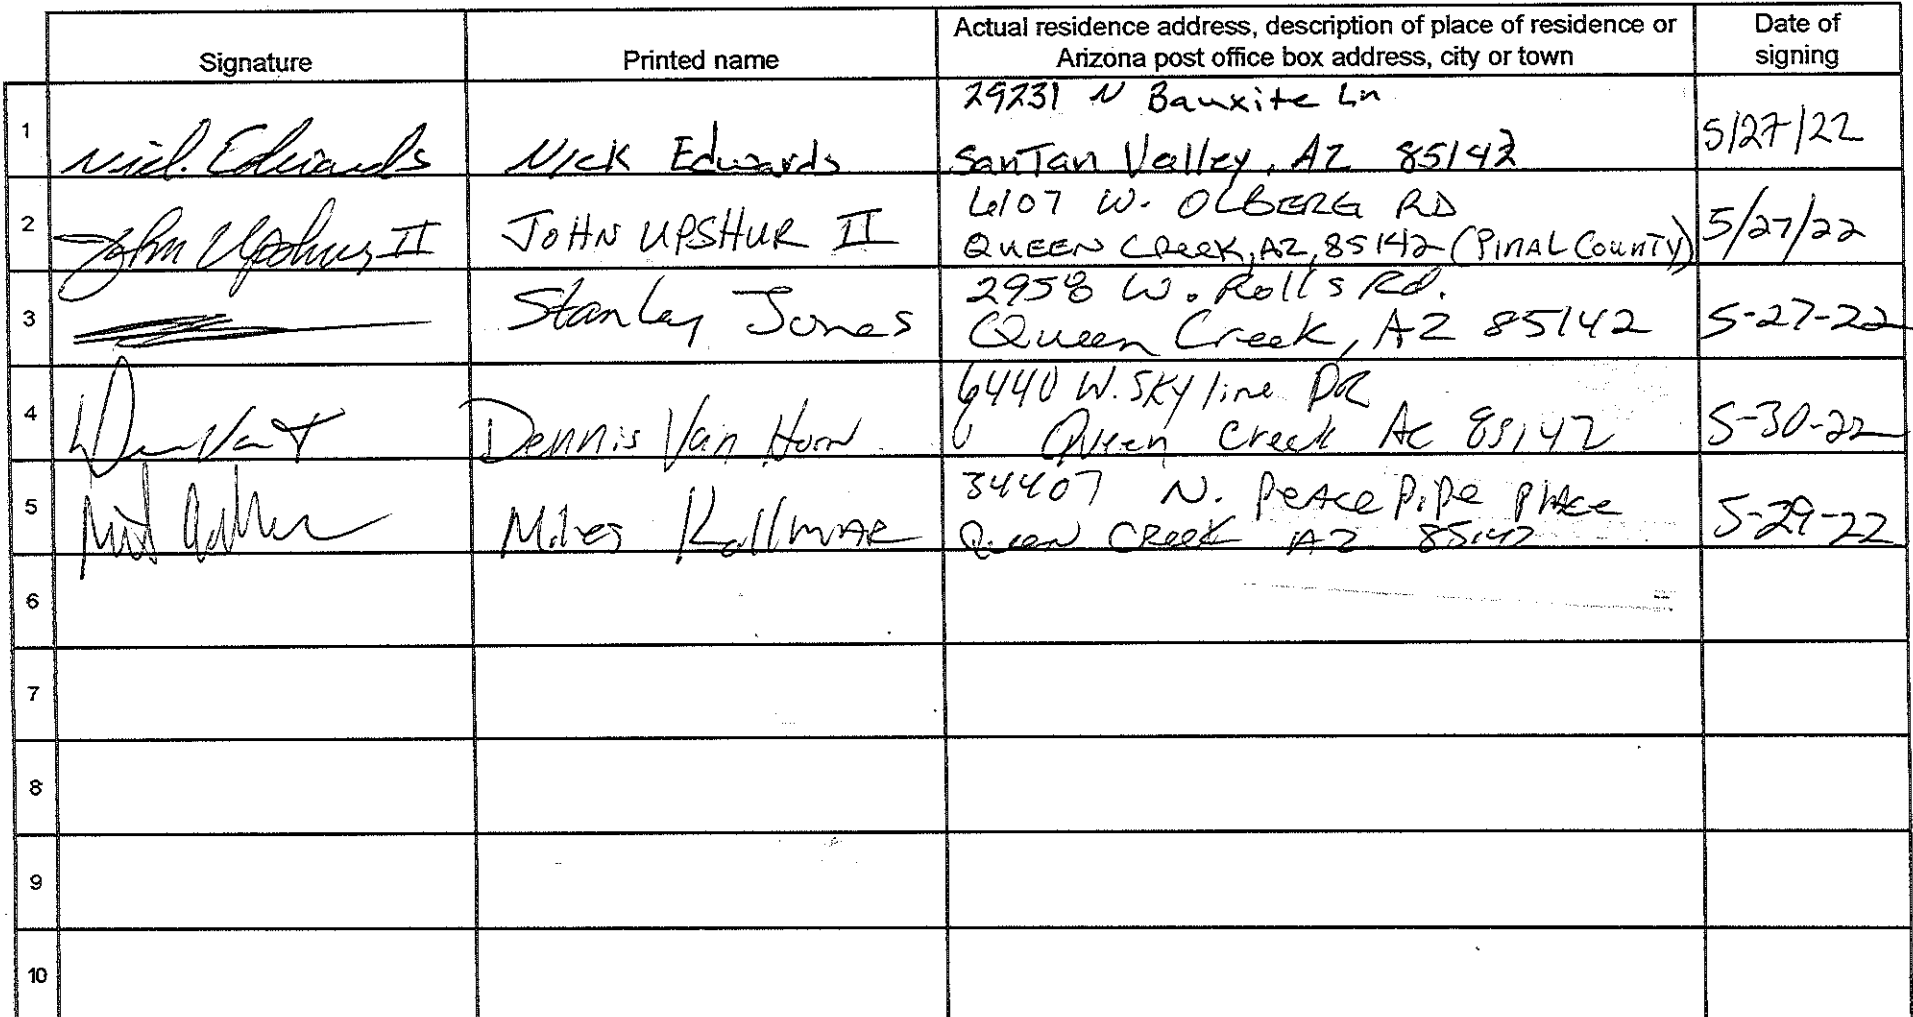 Signature
Printed name
Actual residence address, description of place of residence or
Arizona post office box address, city or town
Date of
signing
1
Nick Edwards
Nick Edwards
29231 N Bauxite Ln
San Tan Valley, AZ 85143
5/27/22
2
John Upshur II
JOHN UPSHUR II
6107 W. OLBERG RD
QUEEN CREEK, AZ, 85142 (PINAL COUNTY)
5/27/22
3
Stanley Jones
2958 W. Rolls Rd.
Queen Creek, AZ 85142
5-27-22
4
Dennis Van Horn
6440 W. SKyline DR
Queen Creek Az 85142
5-30-22
5
Miles Kollmar
34407 N. Peace Pipe Place
Queen Creek AZ 85142
5-29-22
6
7
8
9
10